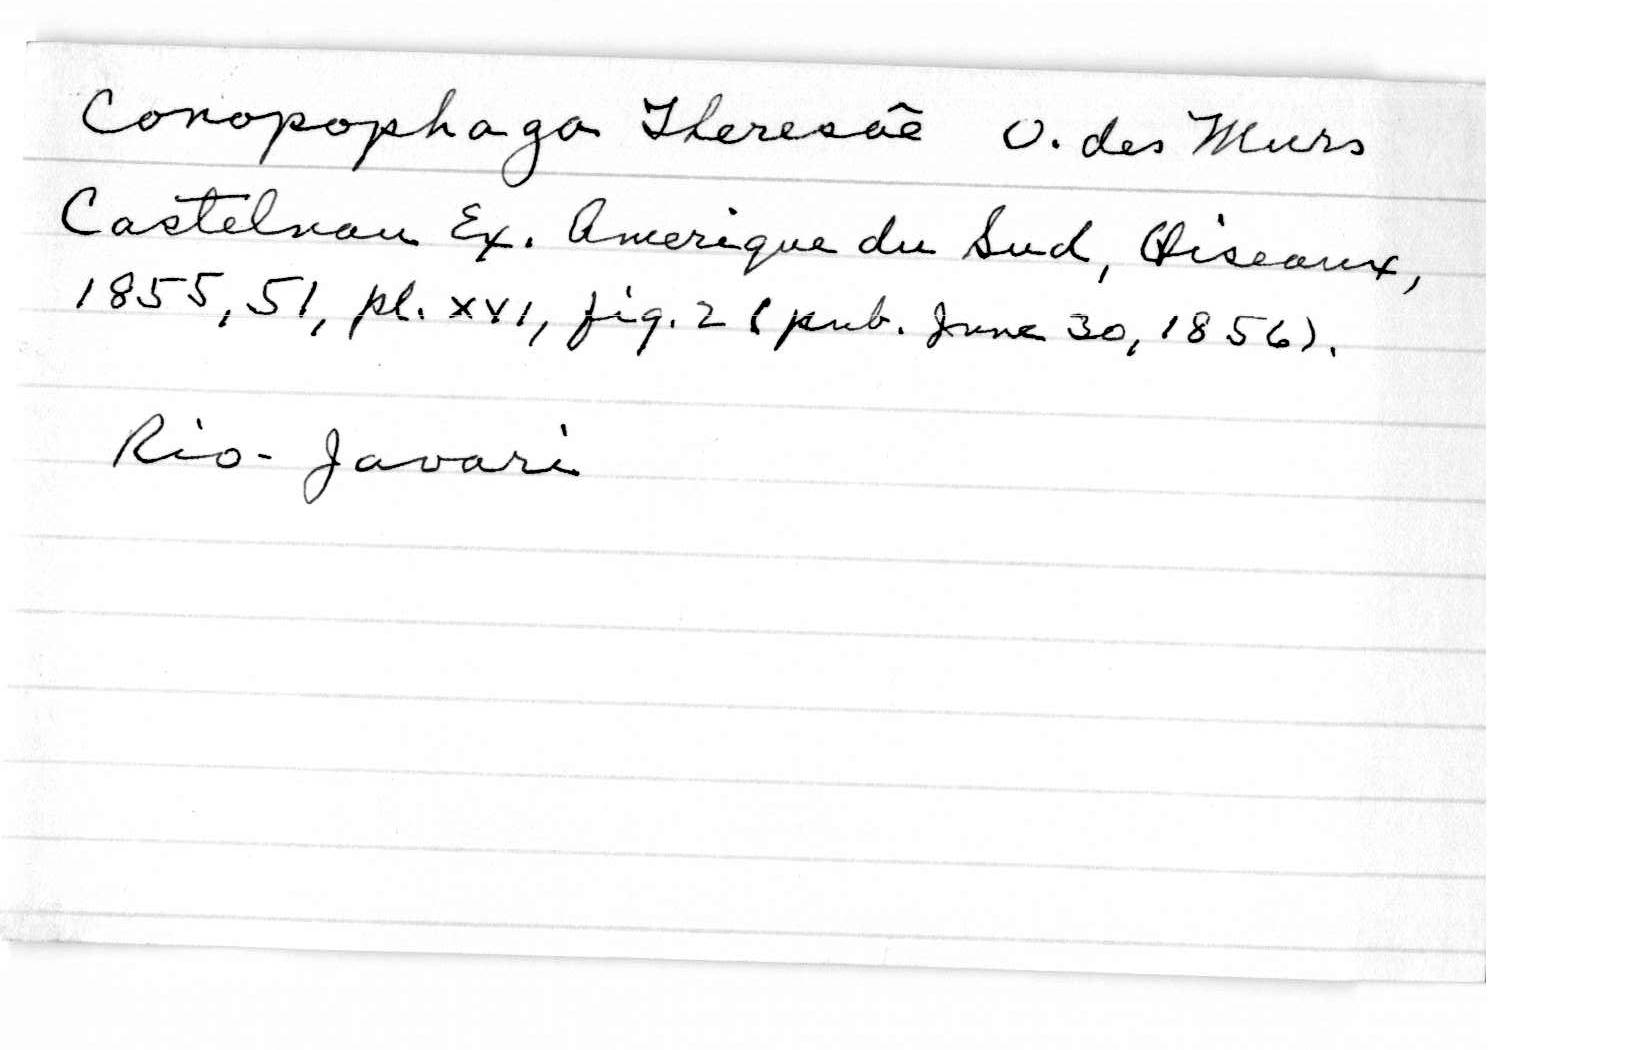 Conopophaga Theresae O. des Murs
Castelnau Ex. Amerique du Sud, Oiseaux,
1855, 51, pl. XVI, fig. 2 (pub. June 30, 1856).
Rio-Javari